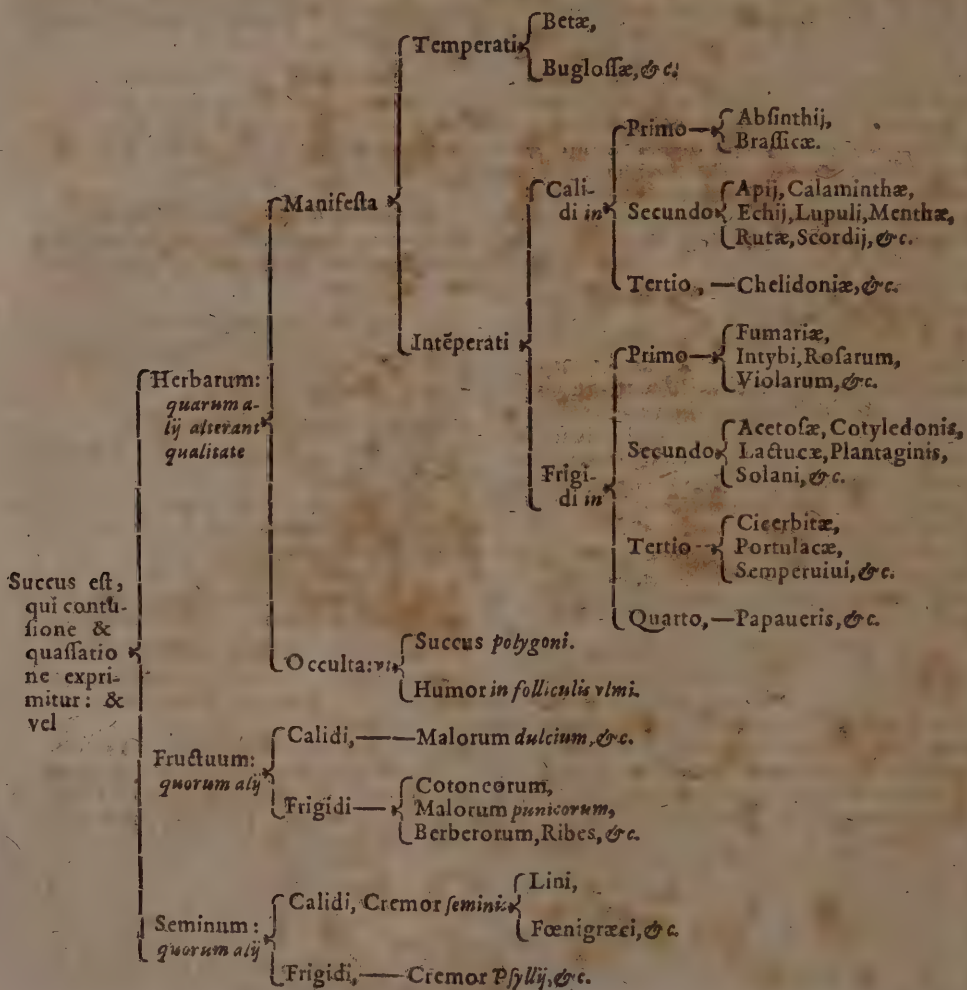 Succus est,
qui contu-
sione &
quassatio
ne expri-
mitur: &
vel
Herbarum:
quarum a-
lij alterant
qualitate
Manifesta
Temperati
Betæ,
Buglossæ, &c.
Intẽperati
Cali-
di in
Primo
Absinthij,
Brassicæ.
Secundo
Apij, Calaminthæ,
Echij, Lupuli, Menthæ,
Rutæ, Scordij, &c.
Tertio, — Chelidoniæ, &c.
Frigi-
di in
Primo
Fumariæ,
Intybi, Rosarum,
Violarum, &c.
Secundo
Acetosæ, Cotyledonis,
Lactucæ, Plantaginis,
Solani, &c.
Tertio
Cicerbitæ,
Portulacæ,
Semperuiui, &c.
Quarto, — Papaueris, &c.
Occulta: vt
Succus polygoni.
Humor in folliculis vlmi.
Fructuum:
quorum alij
Calidi, — Malorum dulcium, &c.
Frigidi —
Cotoneorum,
Malorum punicorum,
Berberorum, Ribes, &c.
Seminum:
quorum alij
Calidi, Cremor seminis
Lini,
Fœnigræci, &c.
Frigidi, — Cremor Psyllij, &c.